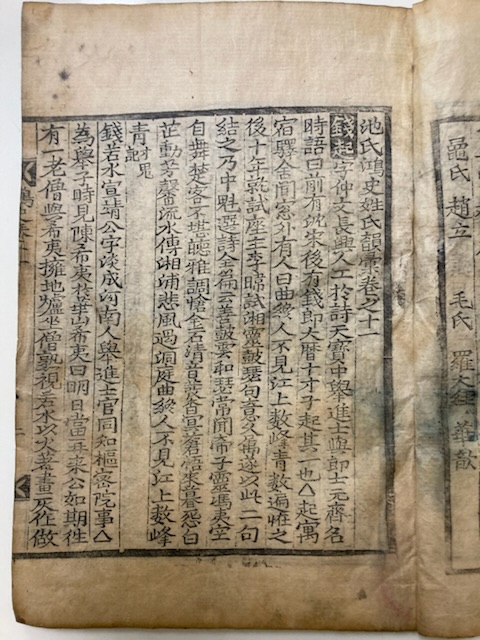 趙立
毛氏 羅大經 華歆
池氏鴻史姓氏韻彙卷之十一
錢起字仲文長興人工於詩天寶中舉進士與郎士元齊名
時語曰前有沈宋後有錢郎大曆十才子起其一也△起寓
宿驛舍聞窓外有人曰曲終人不見江上數峰青數遍恠之
後十年就試座主李暐試湘靈鼓瑟句意久備遂以此二句
結之乃中魁選詩全篇云善鼓雲和瑟常聞帝子靈馮夷空
自舞楚客不堪聽雅調悽金石清音發杳冥蒼梧來暮怨白
芷動芳馨流水傳湘浦悲風過洞庭曲終人不見江上數峰
青才鬼記
錢若水宣靖公字淡成河南人舉進士官同知樞密院事△
為舉子時見陳希夷於華山希夷曰明日當再來公如期徃
有一老僧與希夷擁地爐坐僧熟視若水以火箸畫灰作做